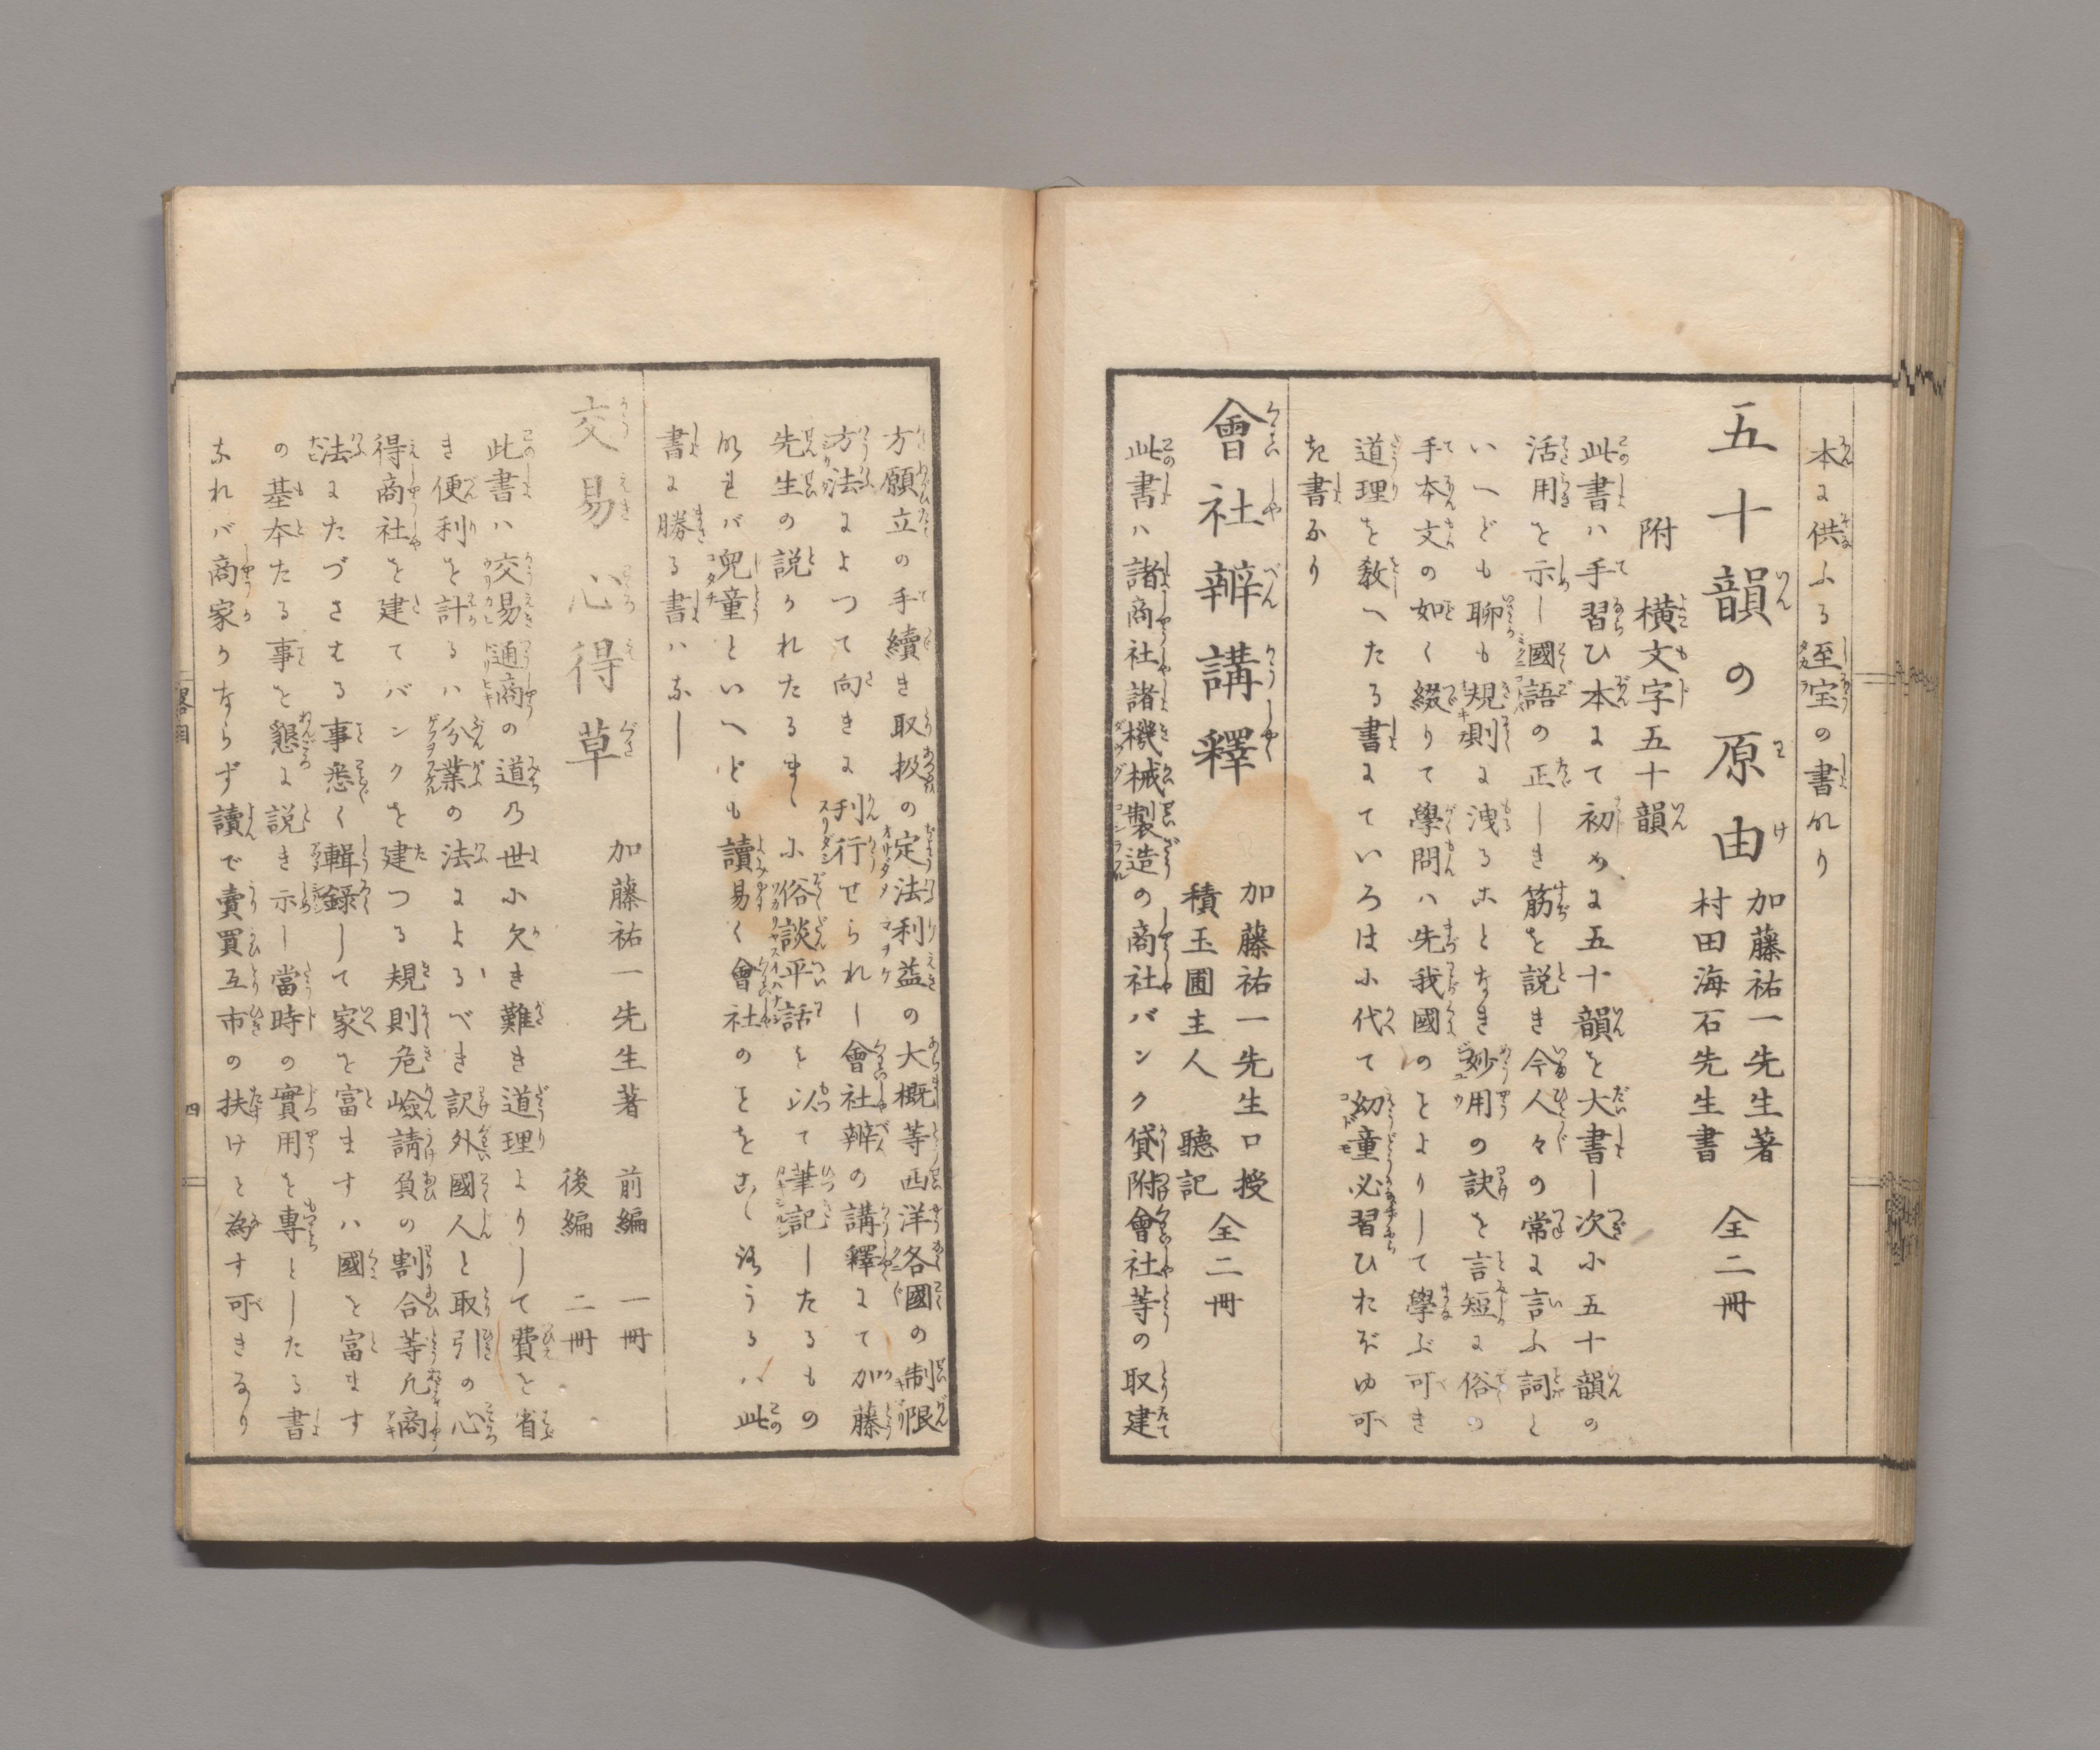 本に供ふる至宝の書なり
五十韻の原由
加藤祐一先生著
村田海石先生書
全二冊
附 横文字五十韻
此書ハ手習ひ本にて初めに五十韻を大書し次に五十韻の
活用を示し國語の正しき筋を説き今人々の常に言ふ詞と
いへども聊も規則に洩ることなき妙用の訣を言短に俗の
手本文の如く綴りて學問ハ先我國のことよりして學ぶ可き
道理を教へたる書にていろはに代て幼童必習ひおぼゆ可
き書なり
會社辨講釋
加藤祐一先生口授
積玉圃主人 聽記
全二冊
此書ハ諸商社諸機械製造の商社バンク貸附會社等の取建
方願立の手續き取扱の定法利益の大概等西洋各國の制限
方法によつて向きに刊行せられし會社辨の講釋にて加藤
先生の説かれたるまゝに俗談平話を以て筆記したるもの
なれバ兒童といへども讀易く會社のことをこゝろうるハ此
書に勝る書ハなし
交易心得草
加藤祐一先生著
前編 一冊
後編 二冊
此書ハ交易通商の道乃世に欠き難き道理よりして費を省
き便利を計るハ分業の法によるべき訳外國人と取引の心
得商社を建てバンクを建つる規則危嶮請負の割合等凡商
法にたづさはる事悉く輯録して家を富ますハ國を富ます
の基本たる事を懇に説き示し當時の實用を專としたる書
なれバ商家かならず讀で賣買互市の扶けと為す可きなり
畧目
四